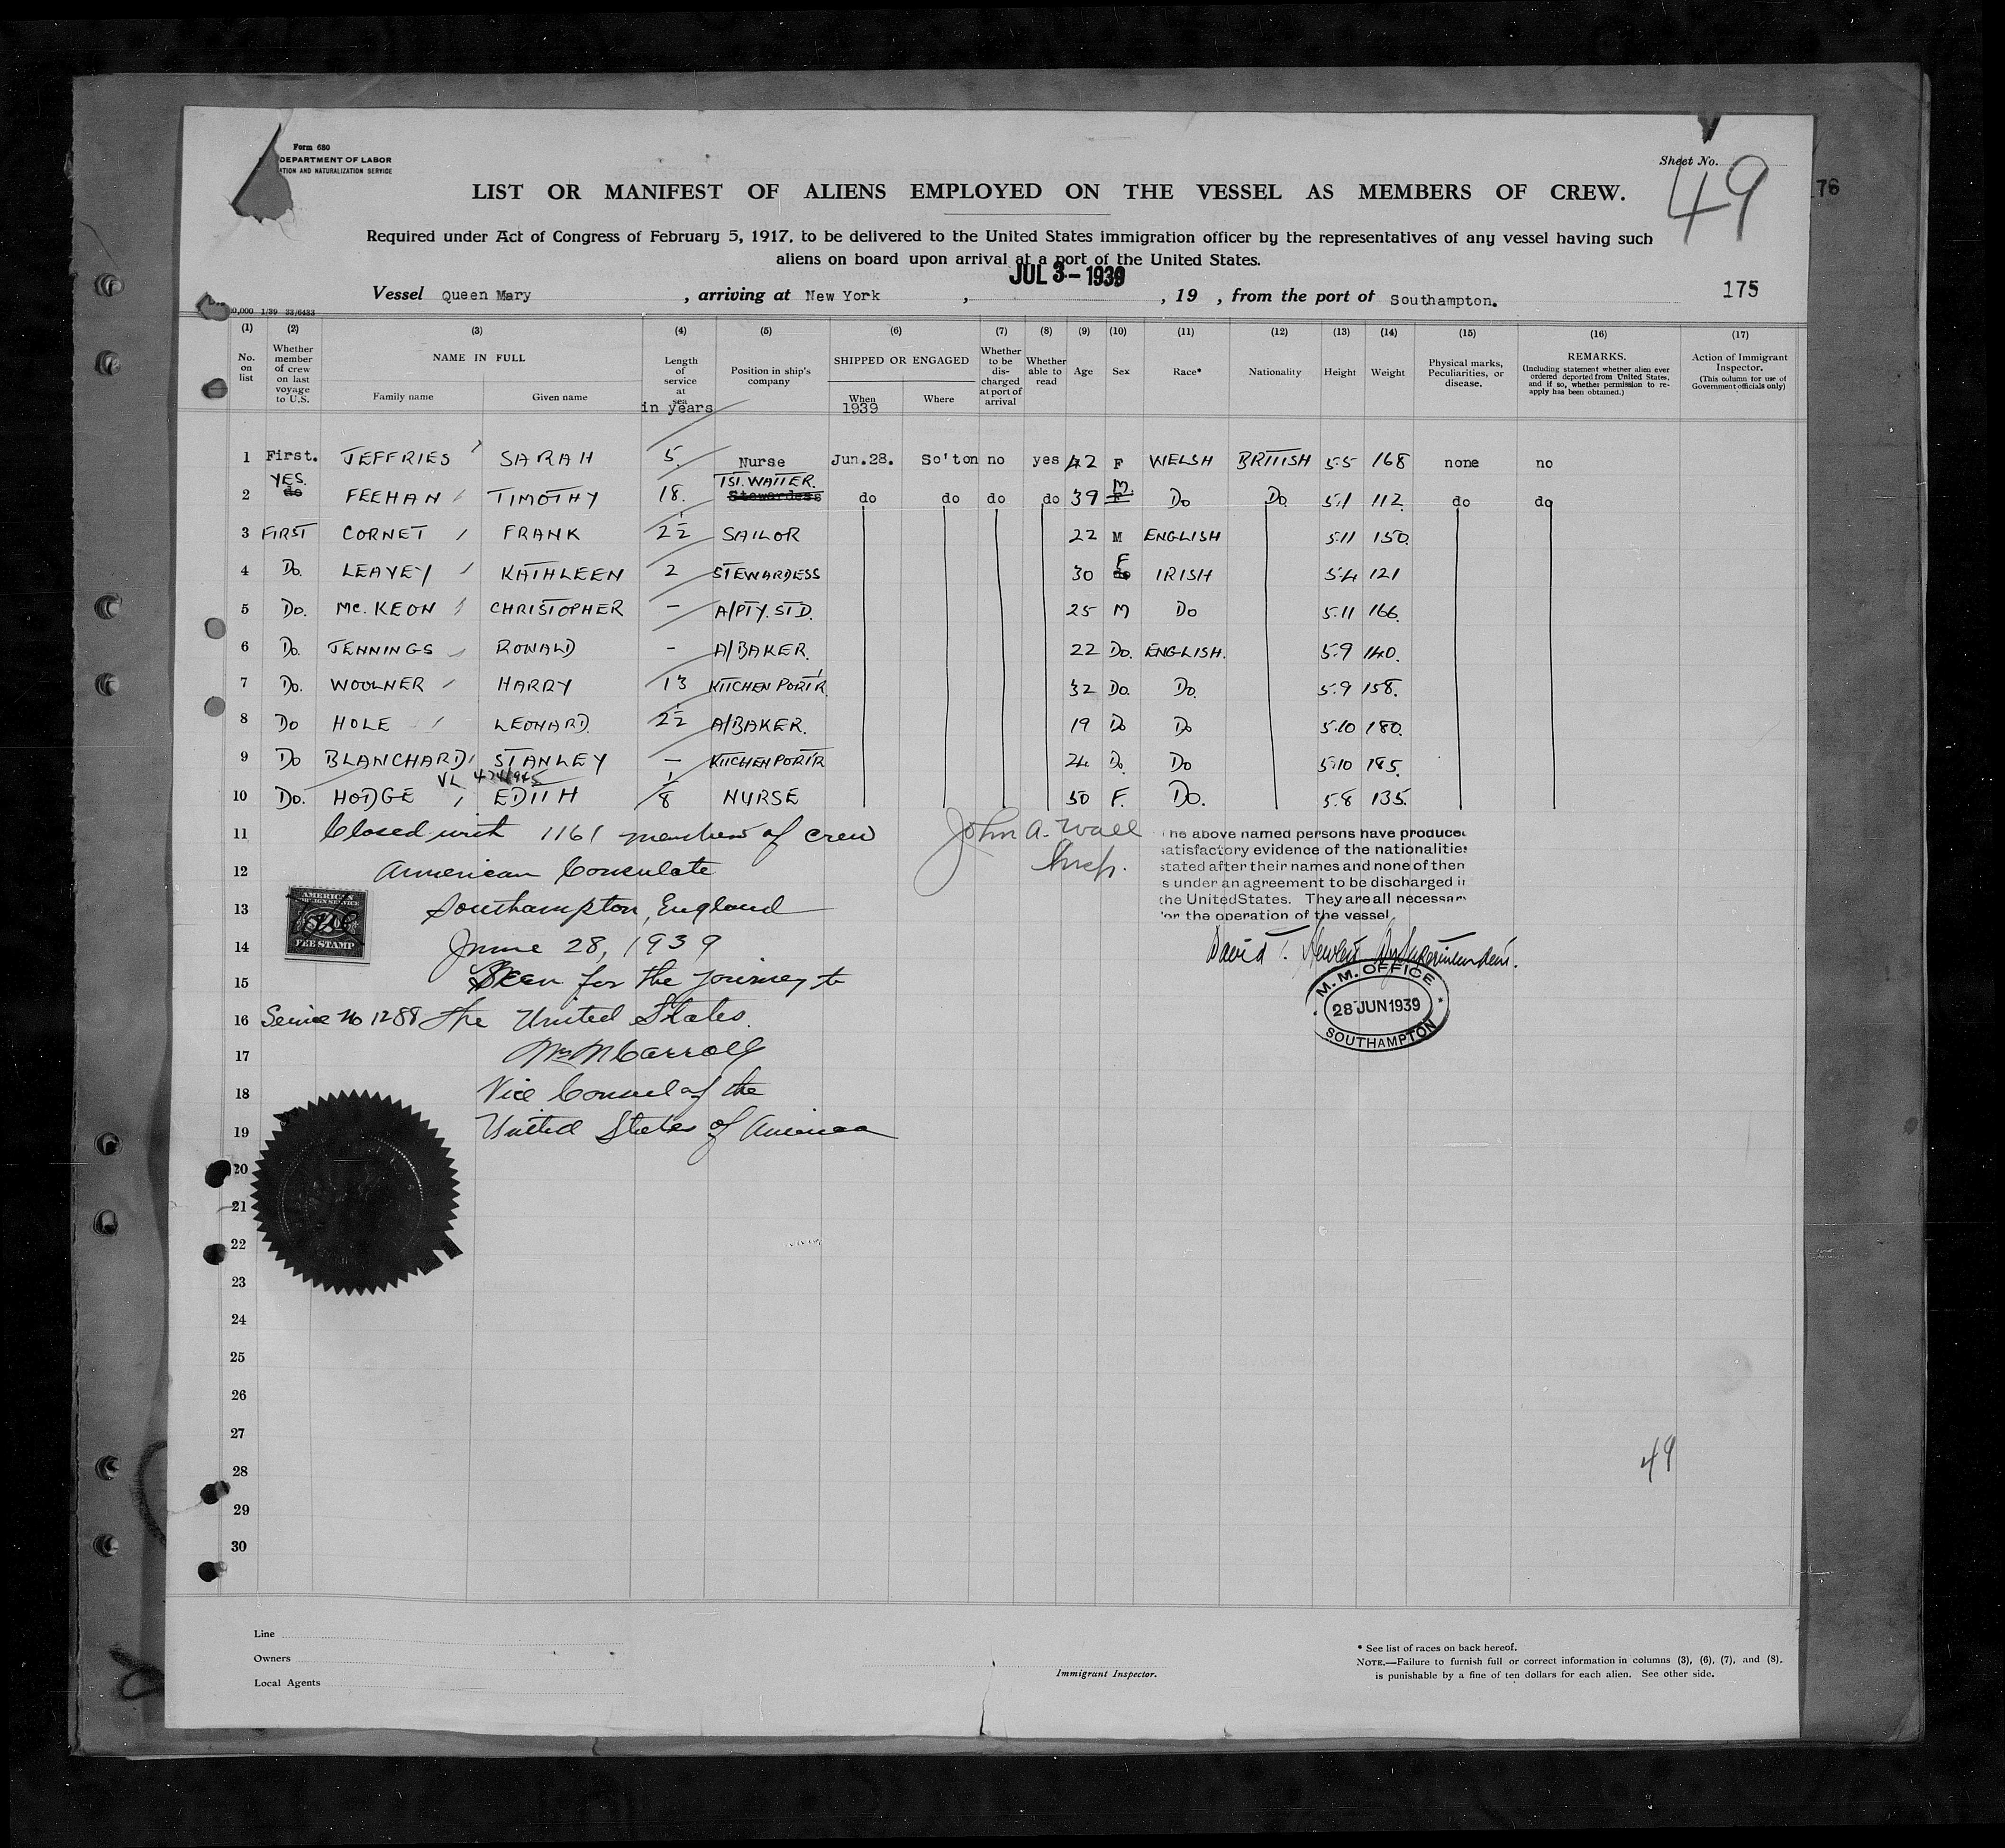 Form 680
DEPARTMENT OF LABOR
ATION AND NATURALIZATION SERVICE
Sheet No. 49
176
LIST OR MANIFEST OF ALIENS EMPLOYED ON THE VESSEL AS MEMBERS OF CREW.
Required under Act of Congress of February 5, 1917, to be delivered to the United States immigration officer by the representatives of any vessel having such
aliens on board upon arrival at a port of the United States.
JUL 3-1939
Vessel Queen Mary , arriving at New York , , 19 , from the port of Southampton. 175
0,000 1/39 33/6433
(1) (2) (3) (4) (5) (6) (7) (8) (9) (10) (11) (12) (13) (14) (15) (16) (17)
No. on list
Whether member of crew on last voyage to U.S.
NAME IN FULL
Family name Given name
Length of service at sea
in years
Position in ship's company
SHIPPED OR ENGAGED
When Where
1939
Whether to be dis- charged at port of arrival
Whether able to read
Age
Sex
Race*
Nationality
Height
Weight
Physical marks, Peculiarities, or disease.
REMARKS.
(Including statement whether alien ever ordered deported from United States, and if so, whether permission to re- apply has been obtained.)
Action of Immigrant Inspector.
(This column for use of Government officials only)
1 First. JEFFRIES SARAH 5. Nurse Jun.28. So'ton no yes 42 F WELSH BRITISH 5.5 168 none no
YES. 1ST. WAITER. M.
2 do FEEHAN TIMOTHY 18. Stewardess do do do do 39 F Do Do. 5.1 112. do do
3 FIRST CORNET FRANK 2½ SAILOR 22 M ENGLISH 5.11 150.
4 Do. LEAVEY KATHLEEN 2 STEWARDESS 30 F do IRISH 5.4 121
5 Do. Mc.KEON CHRISTOPHER - A/PTY. STD. 25 M Do 5.11 166.
6 Do. JENNINGS RONALD - A/BAKER. 22 Do. ENGLISH. 5.9 140.
7 Do. WOOLNER HARRY 13 KITCHEN PORT'R. 32 Do. Do. 5.9 158.
8 Do HOLE LEONARD. 2½ A/BAKER. 19 Do Do 5.10 180.
9 Do BLANCHARD STANLEY - KITCHEN PORT'R 24 Do. Do 5.10 185.
10 Do. HODGE EDITH 1/8 NURSE 50 F. Do. 5.8 135.
11 Closed with 1161 members of crew
John A. Wall
Insp.
12 American Consulate
13 Southampton, England
14 June 28, 1939
15 Seen for the journey to
16 Service No 1288 the United States.
17 Carroll
18 Vice Consul of the
19 United States of America
AMERICAN
FOREIGN SERVICE
FEE STAMP
The above named persons have produced
satisfactory evidence of the nationalities
stated after their names and none of them
s under an agreement to be discharged in
the United States. They are all necessary
for the operation of the vessel
David T. Superintendent.
M. M. OFFICE
28 JUN 1939
SOUTHAMPTON
20
21
22
23
24
25
26
27
28
49
29
30
Line
Owners
Local Agents
Immigrant Inspector.
* See list of races on back hereof.
NOTE.—Failure to furnish full or correct information in columns (3), (6), (7), and (8),
is punishable by a fine of ten dollars for each alien. See other side.